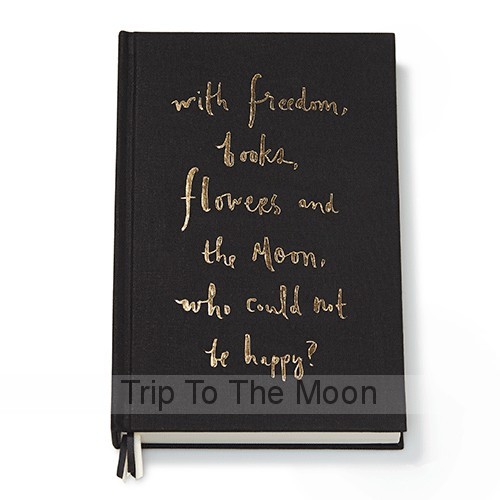 with freedom,
books,
flowers and
the Moon,
who could not
be happy?
Trip To The Moon